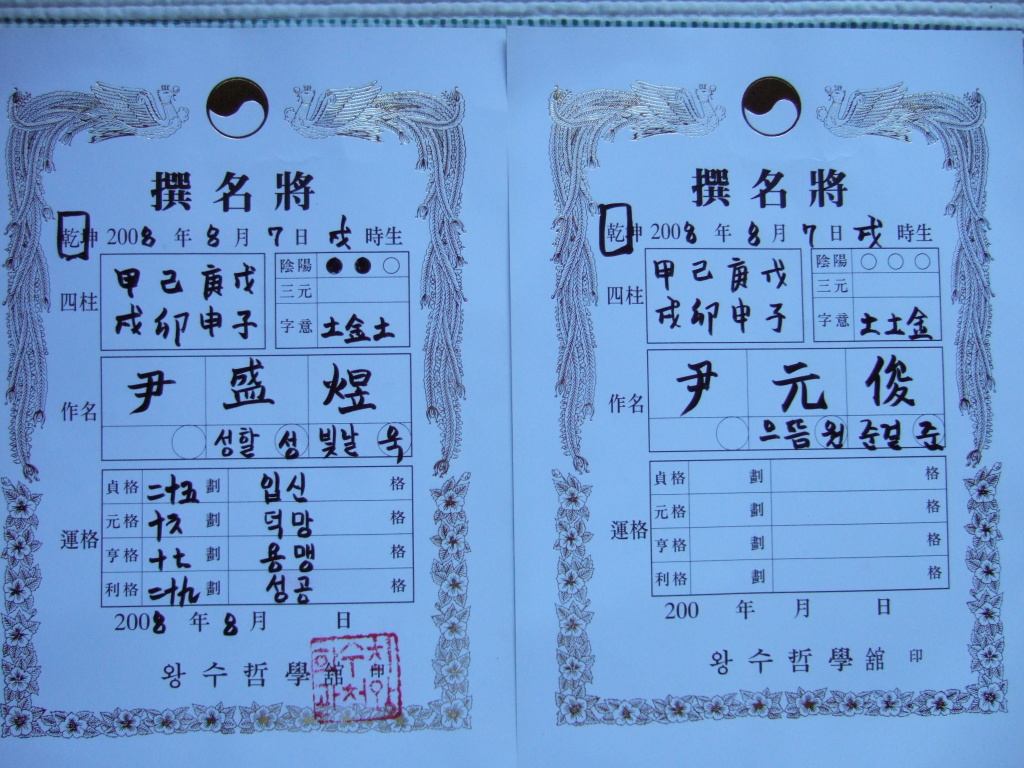 撰名將
乾坤 2008 年 8 月 7 日 戌 時生
四柱
甲 己 庚 戊
戌 卯 申 子
陰陽
三元
字意 土金土
作名 尹 盛 煜
성할 성 빛날 욱
運格
貞格 二十五 劃 입신 格
元格 十六 劃 덕망 格
亨格 十七 劃 용맹 格
利格 二十九 劃 성공 格
2008 年 8 月 日
왕수哲學舘 印
撰名將
乾坤 2008 年 8 月 7 日 戌 時生
四柱
甲 己 庚 戊
戌 卯 申 子
陰陽
三元
字意 土土金
作名 尹 元 俊
으뜸 원 준걸 준
運格
貞格 劃 格
元格 劃 格
亨格 劃 格
利格 劃 格
200 年 月 日
왕수哲學舘 印